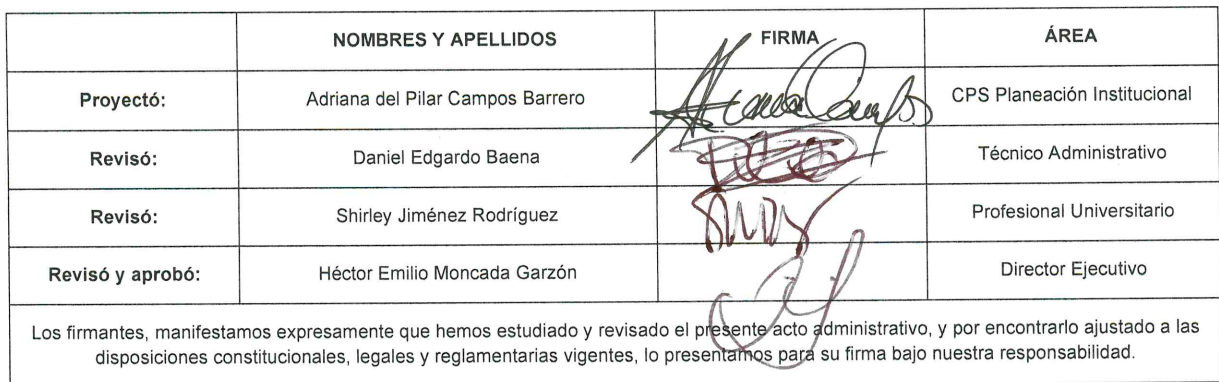 NOMBRES Y APELLIDOS FIRMA ÁREA
Proyectó: Adriana del Pilar Campos Barrero CPS Planeación Institucional
Revisó: Daniel Edgardo Baena Técnico Administrativo
Revisó: Shirley Jiménez Rodríguez Profesional Universitario
Revisó y aprobó: Héctor Emilio Moncada Garzón Director Ejecutivo
Los firmantes, manifestamos expresamente que hemos estudiado y revisado el presente acto administrativo, y por encontrarlo ajustado a las
disposiciones constitucionales, legales y reglamentarias vigentes, lo presentamos para su firma bajo nuestra responsabilidad.